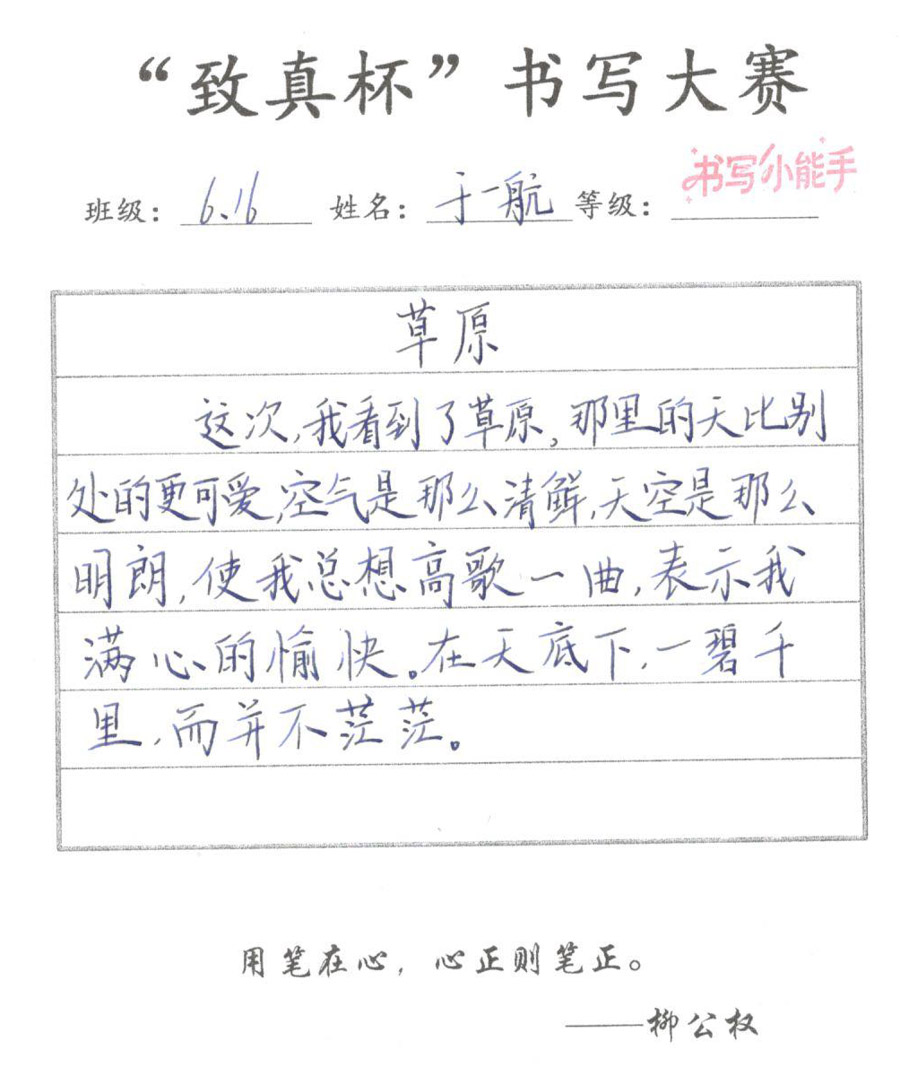 “致真杯”书写大赛
书写小能手
班级：6.16 姓名：于一航 等级：
草原
这次,我看到了草原,那里的天比别
处的更可爱,空气是那么清鲜,天空是那么
明朗,使我总想高歌一曲,表示我
满心的愉快。在天底下,一碧千
里,而并不茫茫。
用笔在心，心正则笔正。
——柳公权